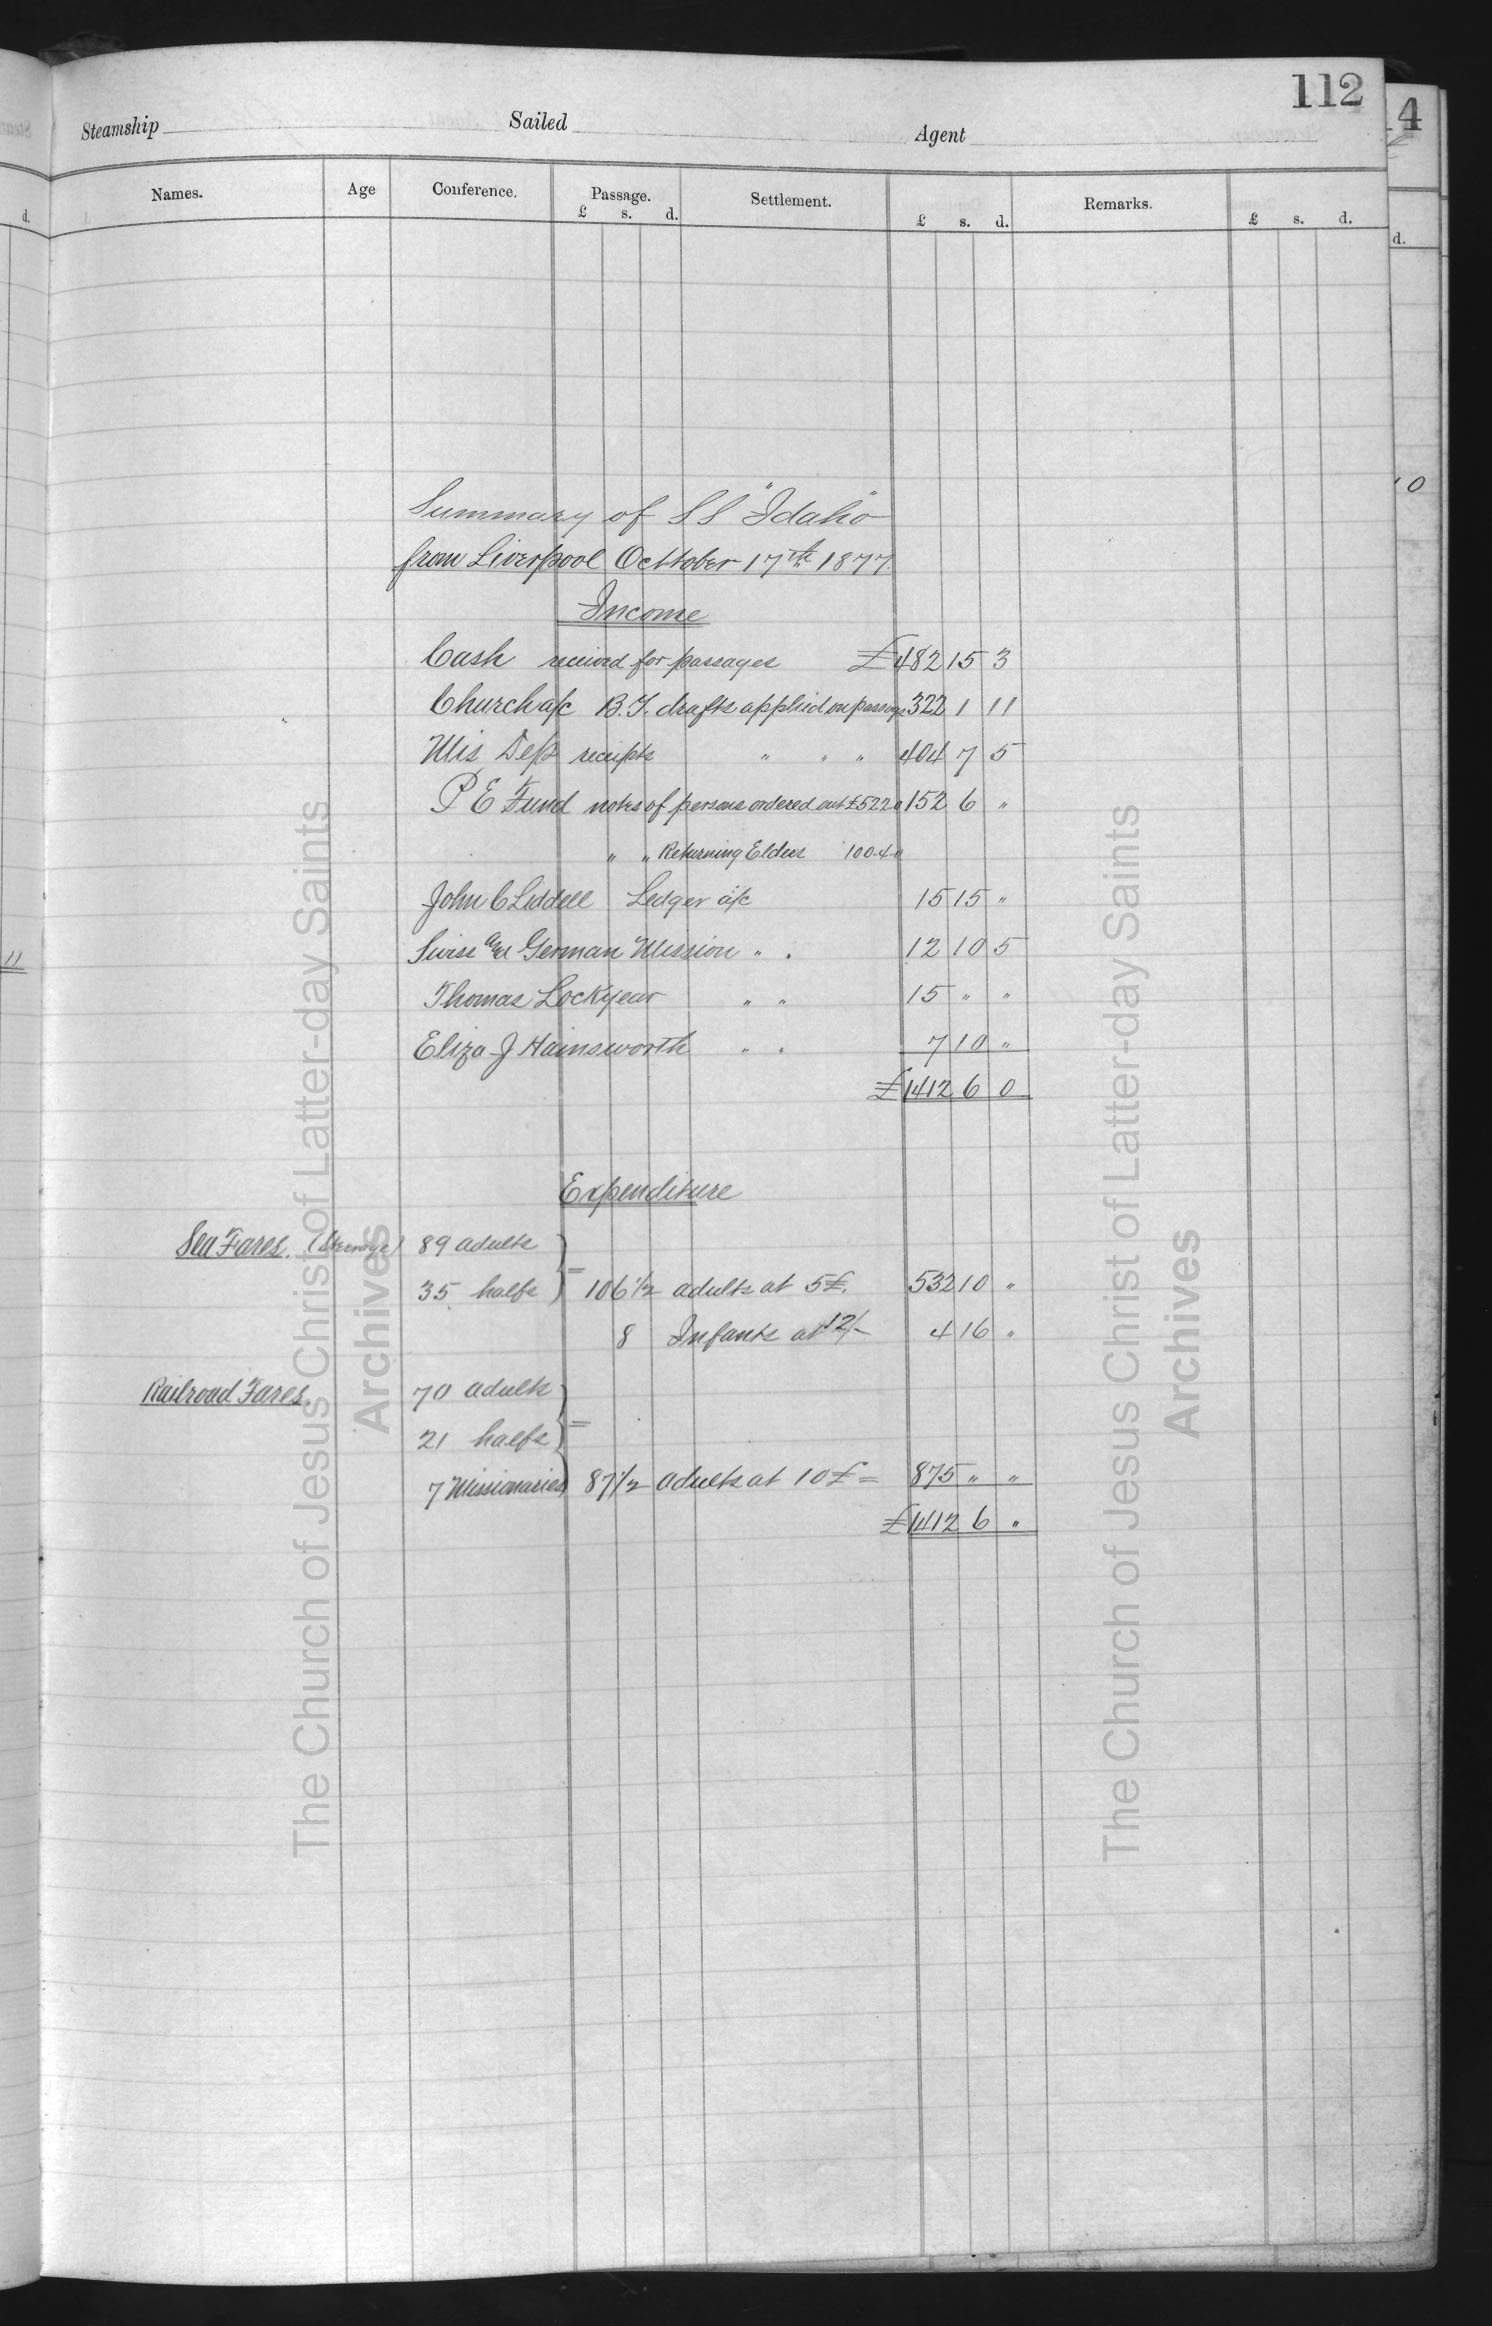 112
Steamship Sailed Agent
Names. Age Conference. Passage. Settlement. Remarks.
£ s. d. £ s. d. £ s. d.
Summary of SS "Idaho"
from Liverpool October 17th 1877.
Income
Cash received for passages £482 15 3
Church a/c B.Y. drafts applied on passage 322 1 11
Mis Dep receipts " " " 404 7 5
P E Fund notes of persons ordered out £52 2 0 152 6 "
" " Returning Elders 100 4 0
John C Liddell Ledger a/c 15 15 "
Swiss and German Mission " " 12 10 5
Thomas Lockyear " " 15 " "
Eliza J Hainsworth " " 7 10 "
£1412 6 0
Expenditure
Sea Fares. (Steerage) 89 adults
35 halfs = 106 1/2 adults at 5£. 532 10 "
8 Infants at 12/- 4 16 "
Railroad Fares. 70 adults
21 halfs =
7 Missionaries 87 1/2 adults at 10£ = 875 " "
£1412 6 "
The Church of Jesus Christ of Latter-day Saints
Archives
The Church of Jesus Christ of Latter-day Saints
Archives